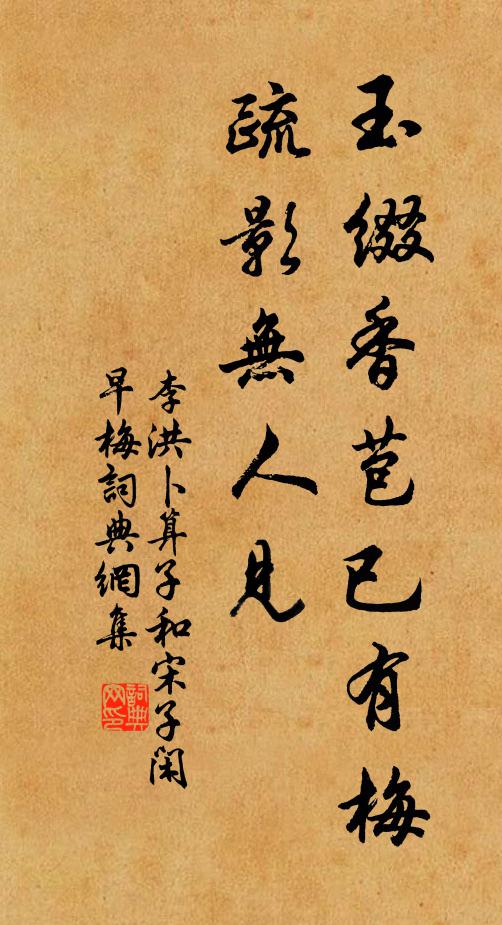 玉綴香苞已有梅
疏影無人見
李洪卜算子和宋子閑
早梅詞典網集
詞典
网印